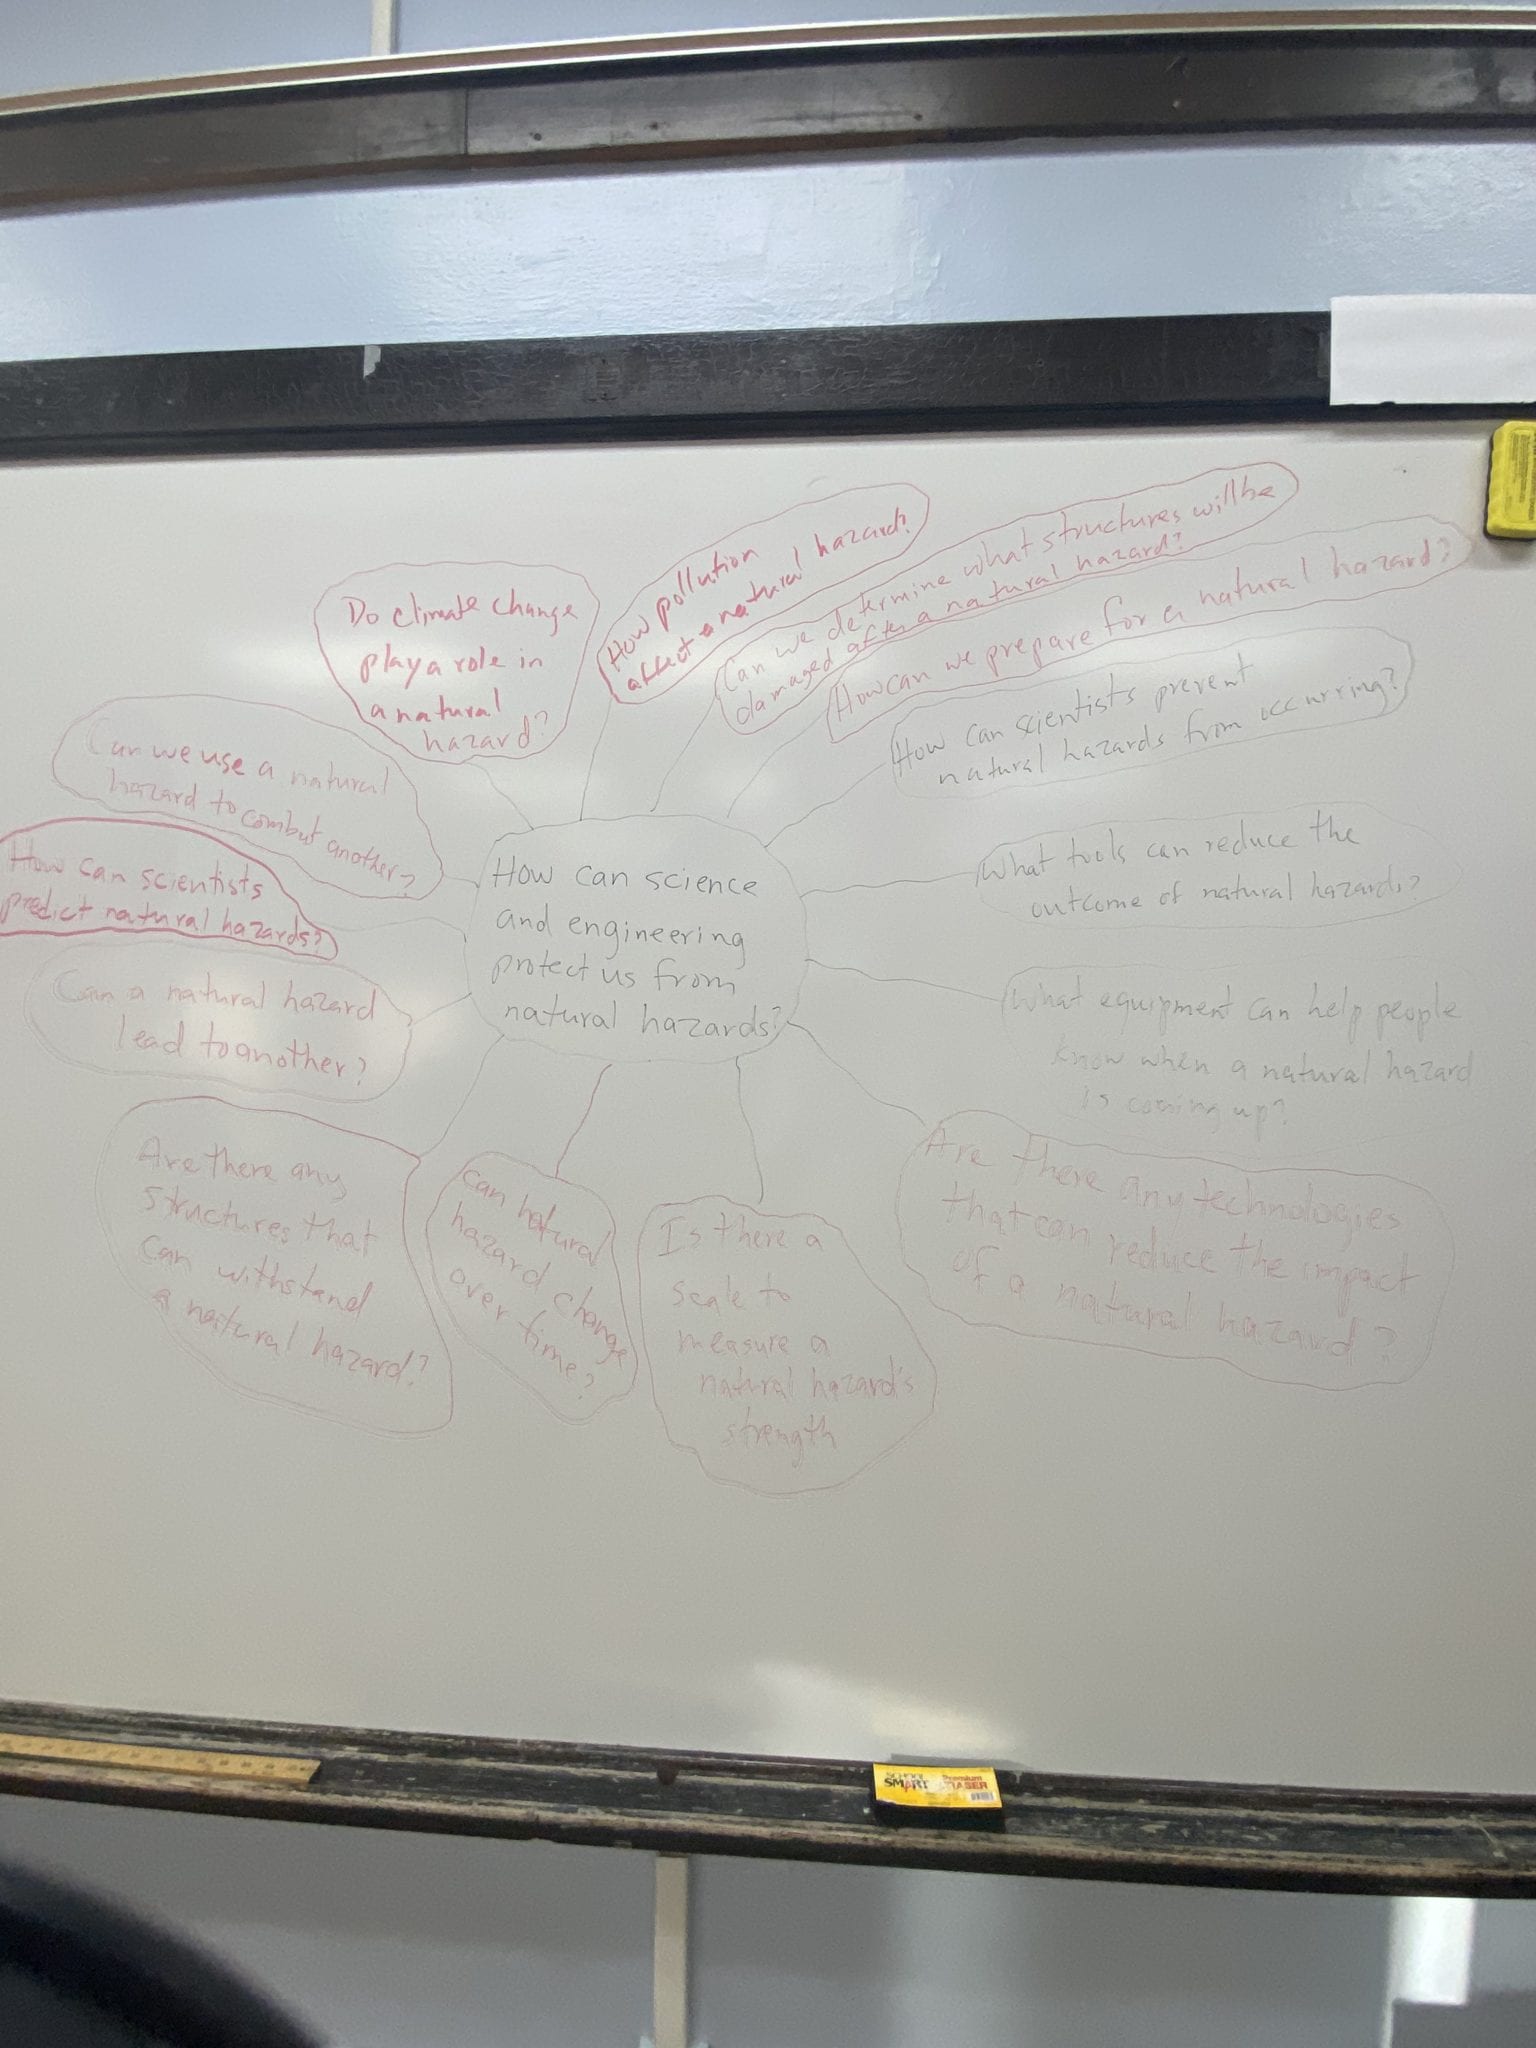 How can science
and engineering
protect us from
natural hazards?
Do climate change
play a role in
a natural
hazard?
How pollution
affect a natural hazard?
Can we determine what structures will be
damaged after a natural hazard?
How can we prepare for a natural hazard?
How can scientists prevent
natural hazards from occurring?
What tools can reduce the
outcome of natural hazards?
What equipment can help people
know when a natural hazard
is coming up?
Are there any technologies
that can reduce the impact
of a natural hazard?
Is there a
scale to
measure a
natural hazard's
strength
Can natural
hazard change
over time?
Are there any
structures that
can withstand
a natural hazard?
Can a natural hazard
lead to another?
How can scientists
predict natural hazards?
Can we use a natural
hazard to combat another?
SCHOOL
SMART
Premium
ERASER